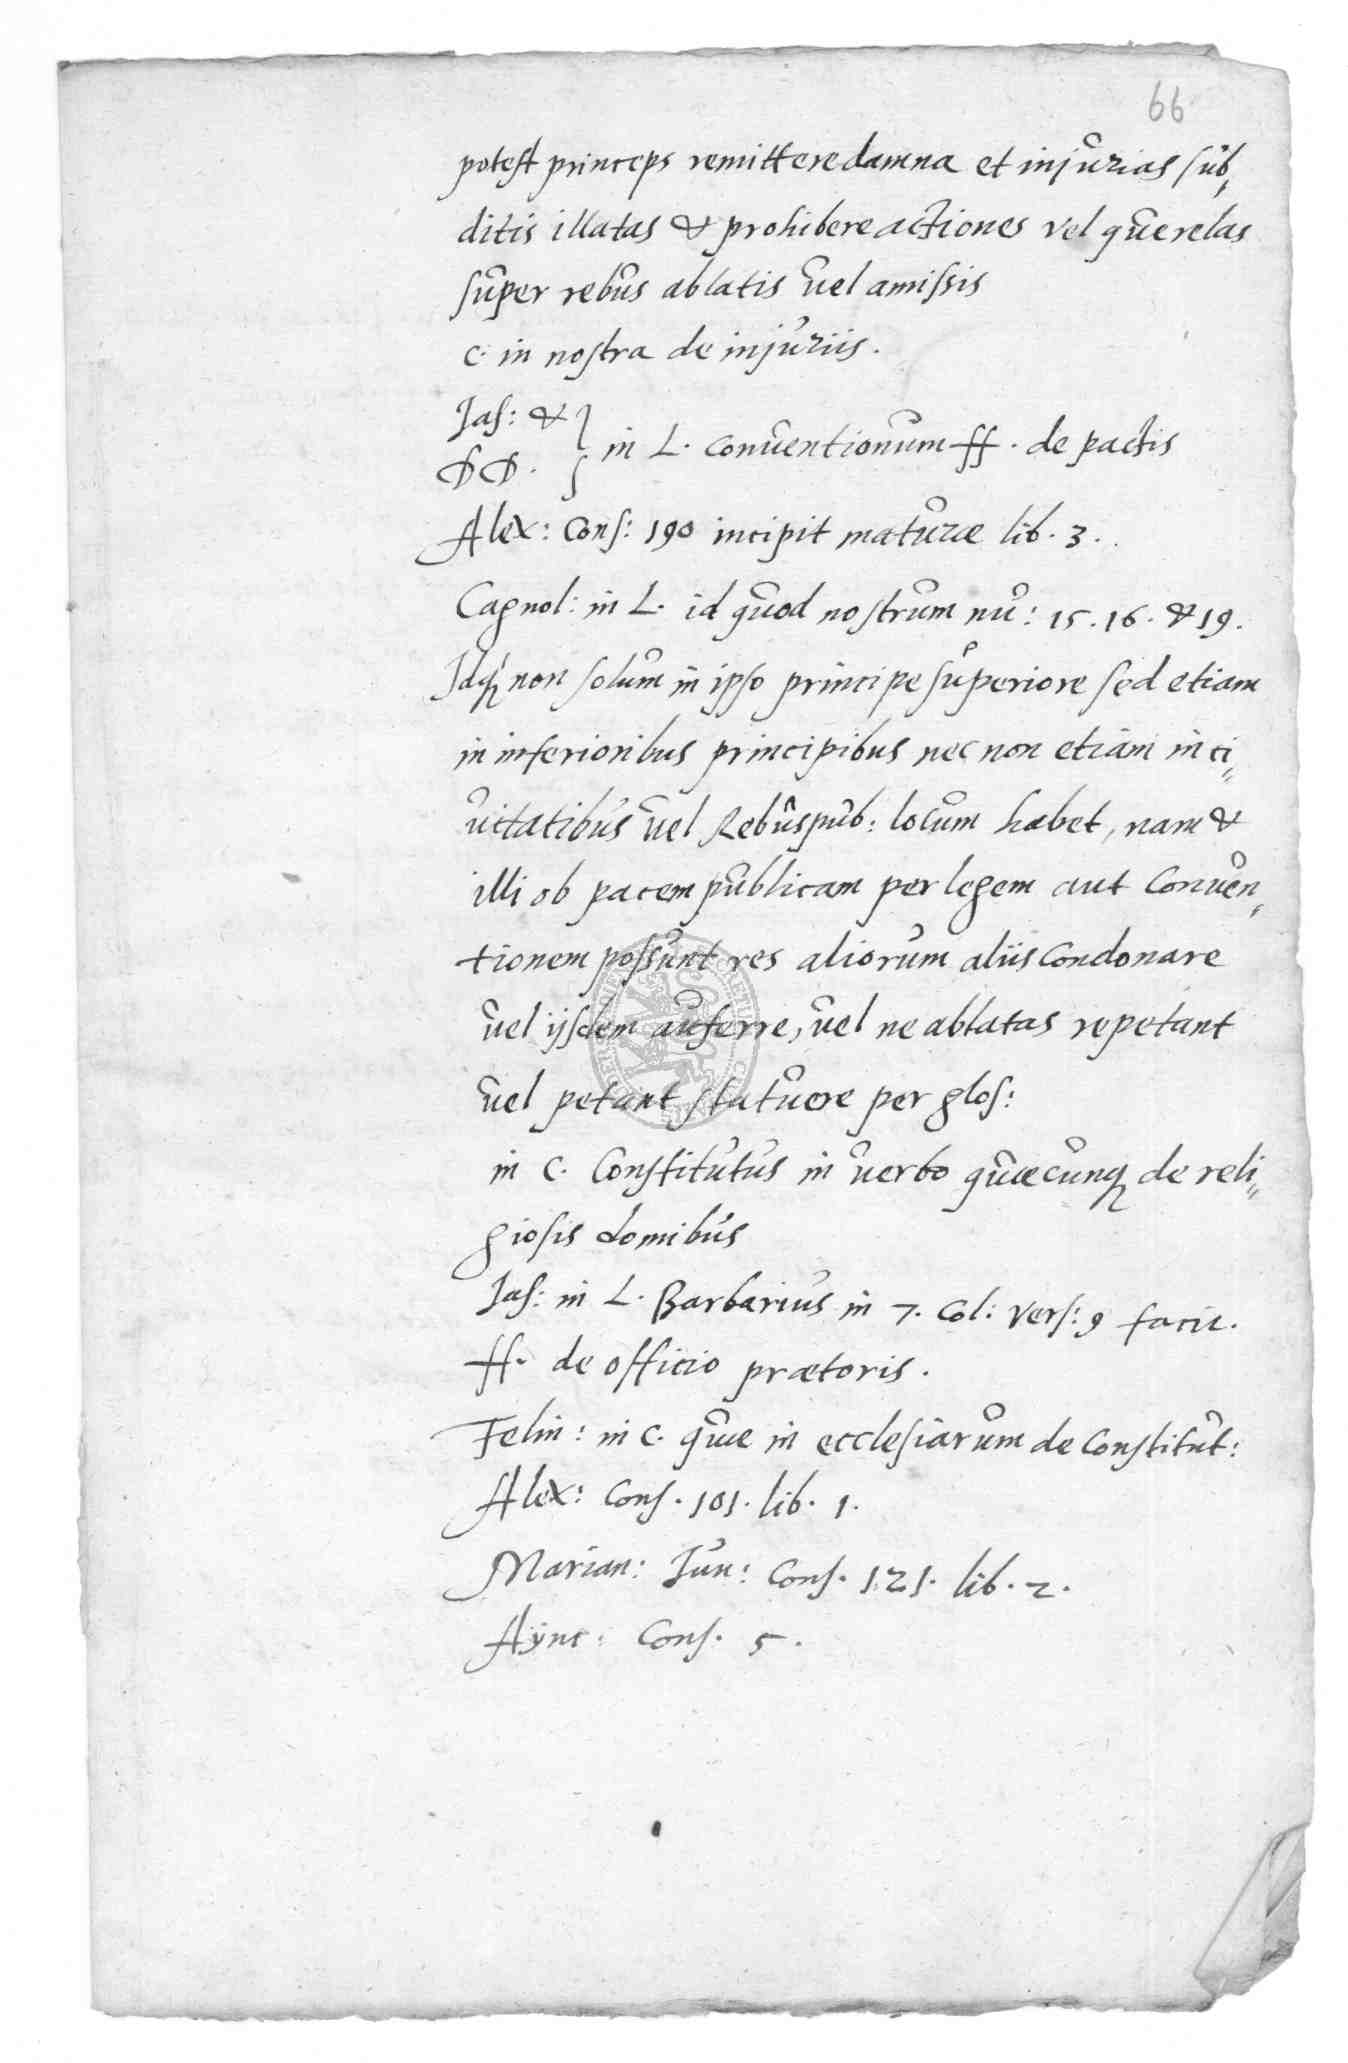 66
potest princeps remittere damna et injurias sub,
ditis illatas & prohibere actiones vel querelas
super rebus ablatis vel amissis
c. in nostra de injuriis.
Jas: & }
DD. } in L. conventionum ff. de pactis
Alex: Cons: 190 incipit mature lib. 3.
Cagnol: in L. id quod nostrum nu: 15. 16. & 19.
Idq non solum in ipso principe superiore sed etiam
in inferioribus principibus nec non etiam in ci„
vitatibus vel Rebuspub: locum habet, nam &
illi ob pacem publicam per legem aut Conven„
tionem possunt res aliorum aliis condonare
vel ijsdem auferre, vel ne ablatas repetant
vel petant statuere per glos:
in C. Constitutus in verbo quæcunq de reli„
giosis domibus
Jas: in L. Barbarius in 7. Col: Vers: 9 facit.
ff. de officio prætoris.
Felin: in c. quæ in ecclesiarum de Constitut:
Alex: Cons. 101. lib. 1.
Marian: Jun: Cons. 121. lib. 2.
Aym: Cons. 5.